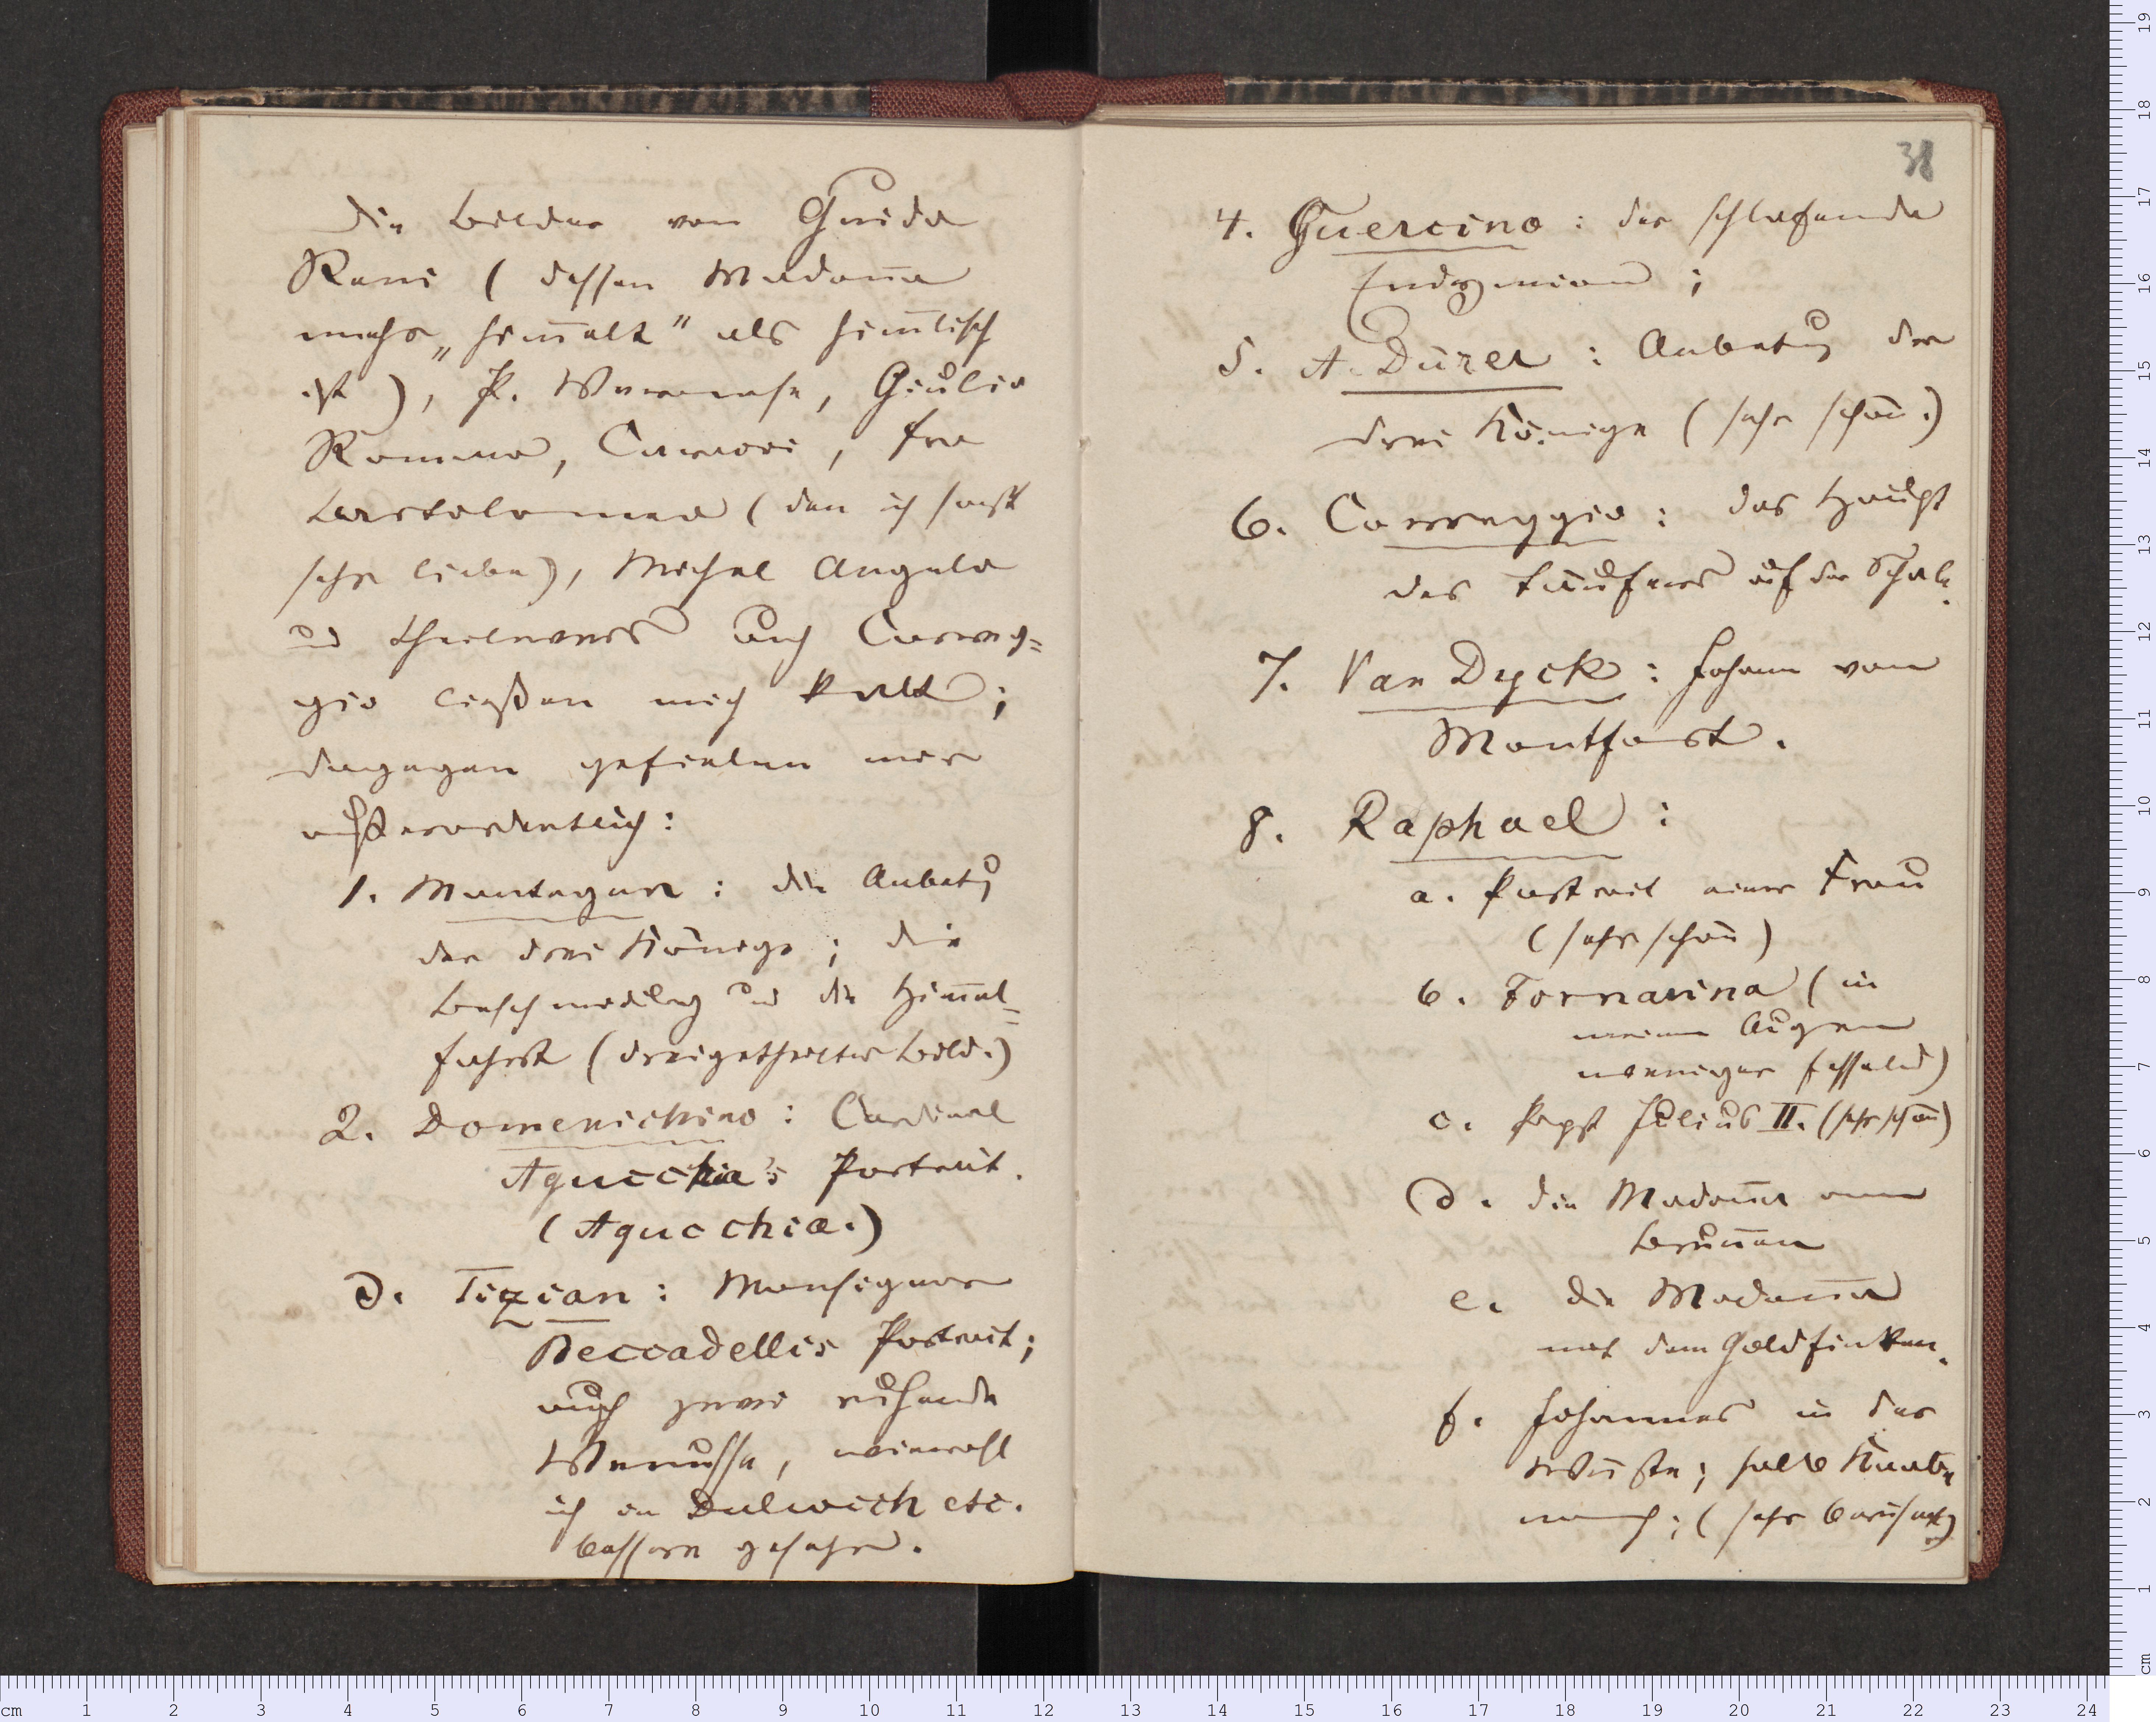 Die Bilder von Guido
Reni (dessen Madoña
mehr „him̄elt" als him̄lisch
ist), P. Veronese, Giulio
Romano, Carracci, Fra
Bartolomeo (den ich sonst
sehr liebe), Michel Angelo
und theilweis auch Correg=
gio ließen mich kalt;
dagegen gefielen mir
außerordentlich:
1. Mantegna: die Anbetg
der drei Könige; die
Beschneidung und die Him̄el=
fahrt (dreigetheiltes Bild.)
2. Domenichino: Cardinal
Agucchia's Portrait.
(Agucchia.)
3. Tizian: Monsignor
Beccadellis Portrait;
auch zwei ruhende
Venusse, wiewohl
ich in Dulwich etc.
bessere gesehen.
38
4. Guercino: der schlafende
Endymion;
5. A. Dürer: Anbetung der
drei Könige (sehr schön.)
6. Correggio: das Haupt
des Täufers auf der Schale.
7. Van Dyck: Johann von
Montfort.
8. Raphael:
a. Portrait einer Frau
(sehr schön)
b. Fornarina (in
meinen Augen
weniger fesselnd)
c. Papst Julius II. (sehr schön)
d. die Madoña am
Bruñen
e. die Madoña
mit dem Goldfinken.
f. Johannes in der
Wüste; halb Knabe
noch; (sehr